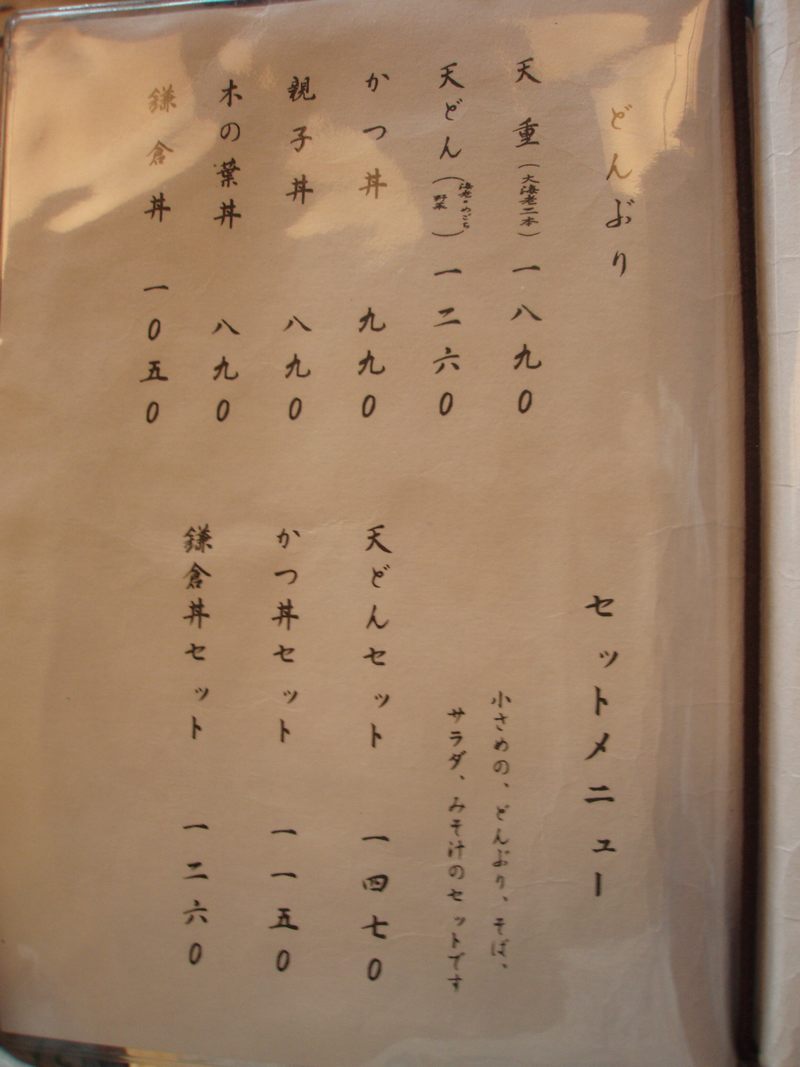 どんぶり
天重(大海老二本)一八九〇
天どん(海老・めごち 野菜)一二六〇
かつ丼 九九〇
親子丼 八九〇
木の葉丼 八九〇
鎌倉丼 一〇五〇
セットメニュー
小さめの、どんぶり、そば、
サラダ、みそ汁のセットです
天どんセット 一四七〇
かつ丼セット 一一五〇
鎌倉丼セット 一二六〇